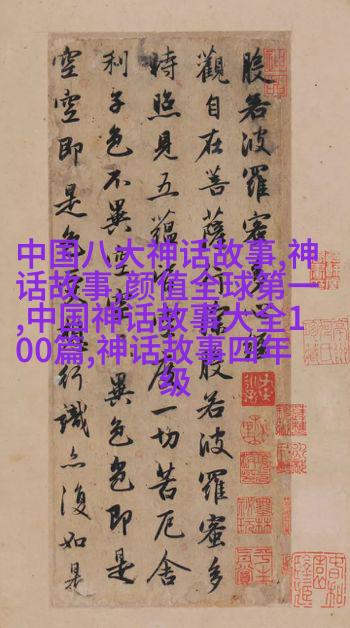 中国八大神话故事,神
话故事,颜值全球第一
,中国神话故事大全1
00篇,神话故事四年
级
般若波羅蜜多心經
觀自在菩薩行深般若波羅蜜多
時照見五蘊皆空度一切苦厄舍
利子色不異空空不異色色即是
空空即是色受想行識亦復如是